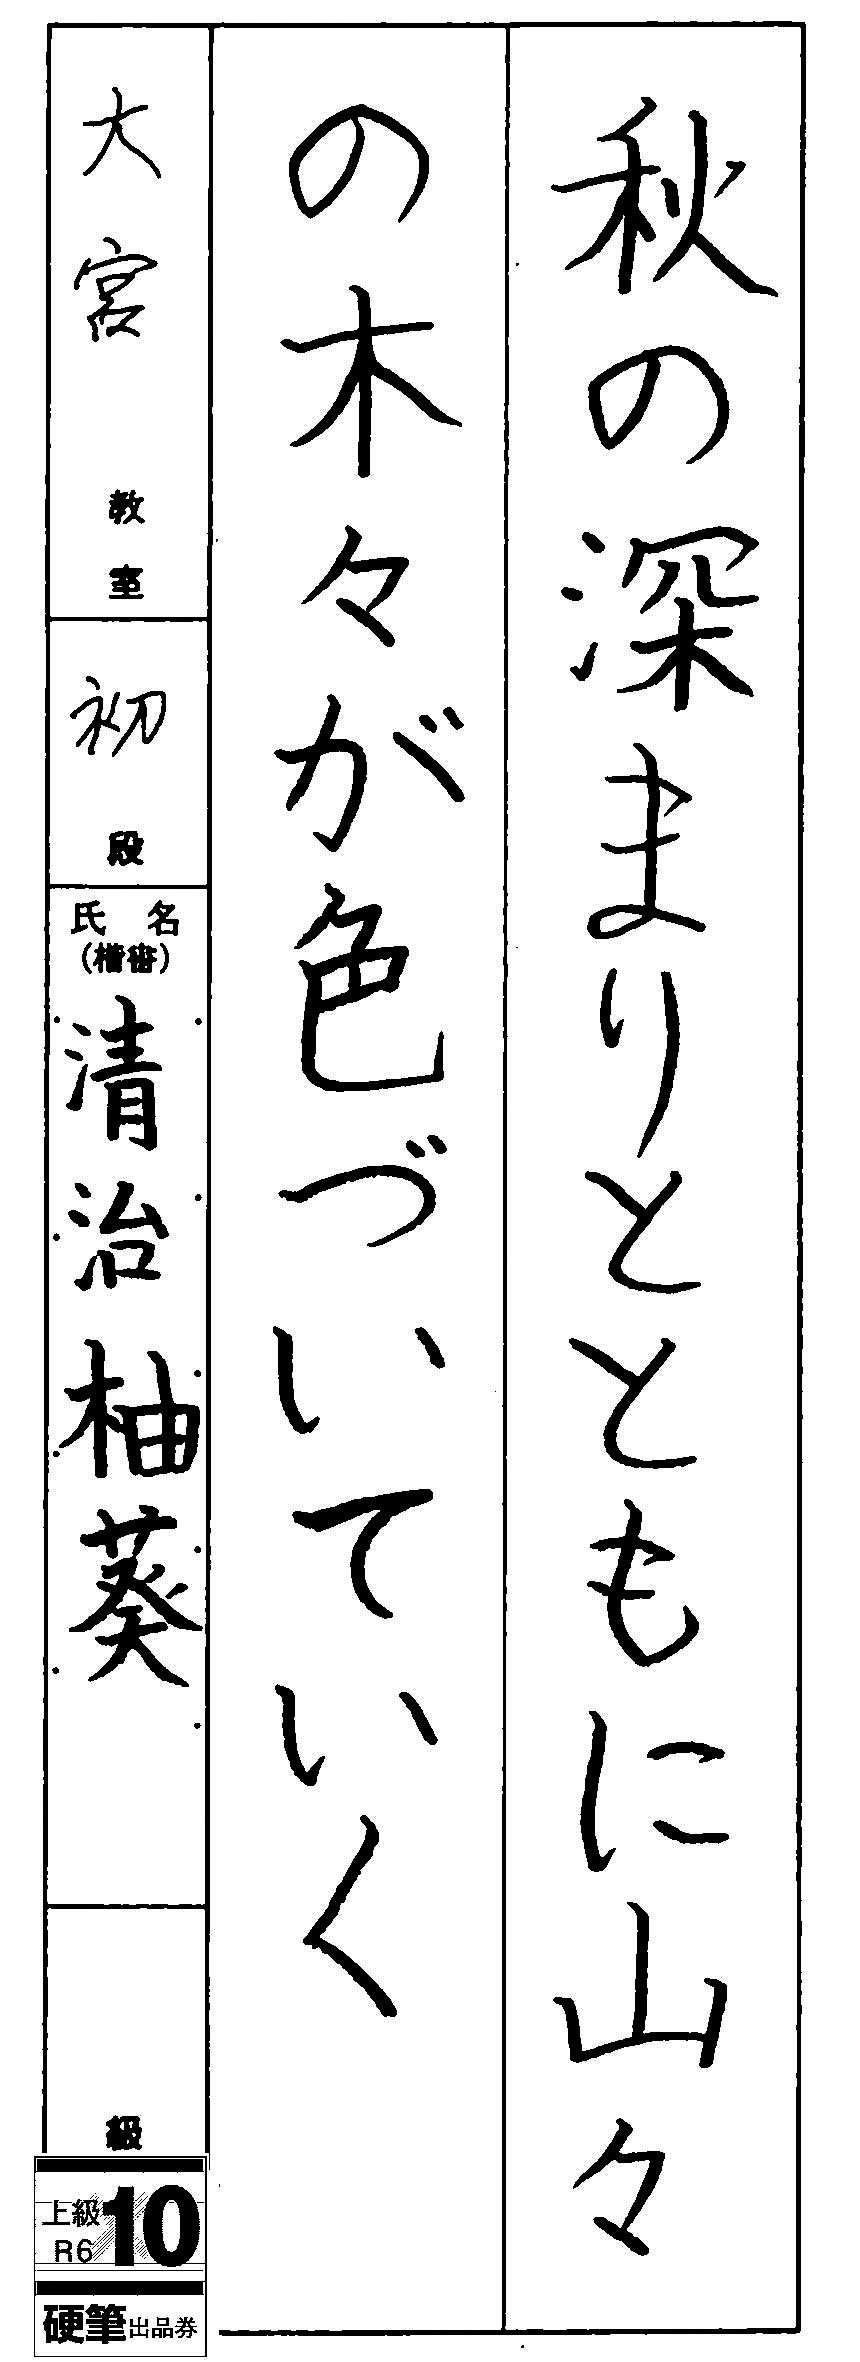 秋の深まりとともに山々
の木々が色づいていく
大宮 教室
初 段
氏名
(楷書)
清治柚葵
級
上級 10
R6
硬筆出品券